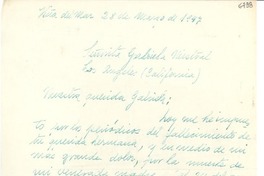 6788
Viña del Mar 28 de Marzo de 1947
Señorita Gabriela Mistral
Los Angeles (California)
Nuestra querida Gabriela;
hoy me he impues
to por los periódicos del fallecimiento de
tu querida hermana, y en medio de mi
más grande dolor, por la muerte de
mi venerada madre,